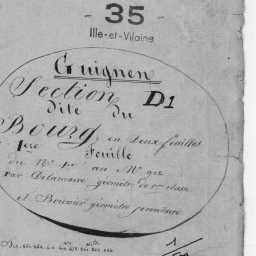 - 35 -
Ille-et-Vilaine
Guignen
Section D1
dite du
Bourg, en deux feuilles
1ère Feuille
du N° 1er au N° 912
Par Delamaire, géomètre de 1ère classe
et géomètre secondaire